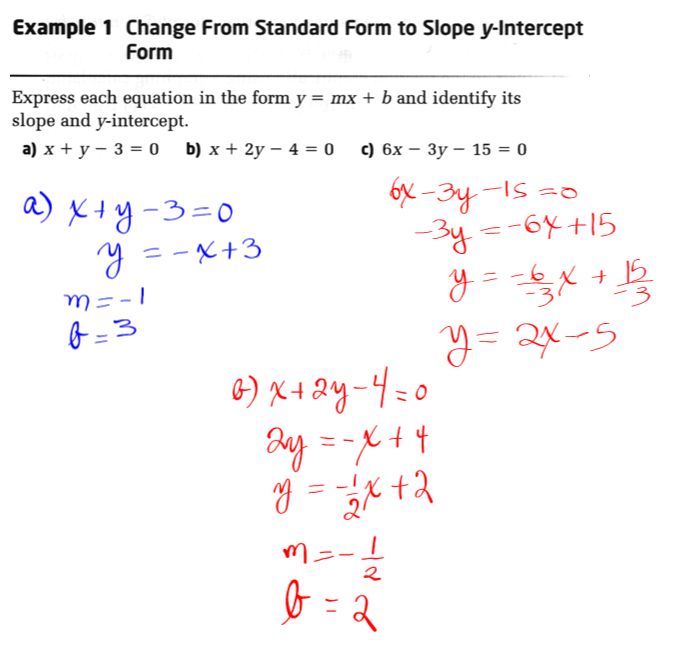 Example 1 Change From Standard Form to Slope y-Intercept
Form
Express each equation in the form y = mx + b and identify its
slope and y-intercept.
a) x + y − 3 = 0 b) x + 2y − 4 = 0 c) 6x − 3y − 15 = 0
a) x + y − 3 = 0
y = −x + 3
m = −1
b = 3
6x − 3y − 15 = 0
−3y = −6x + 15
y = −6/−3 x + 15/−3
y = 2x − 5
b) x + 2y − 4 = 0
2y = −x + 4
y = −1/2 x + 2
m = −1/2
b = 2